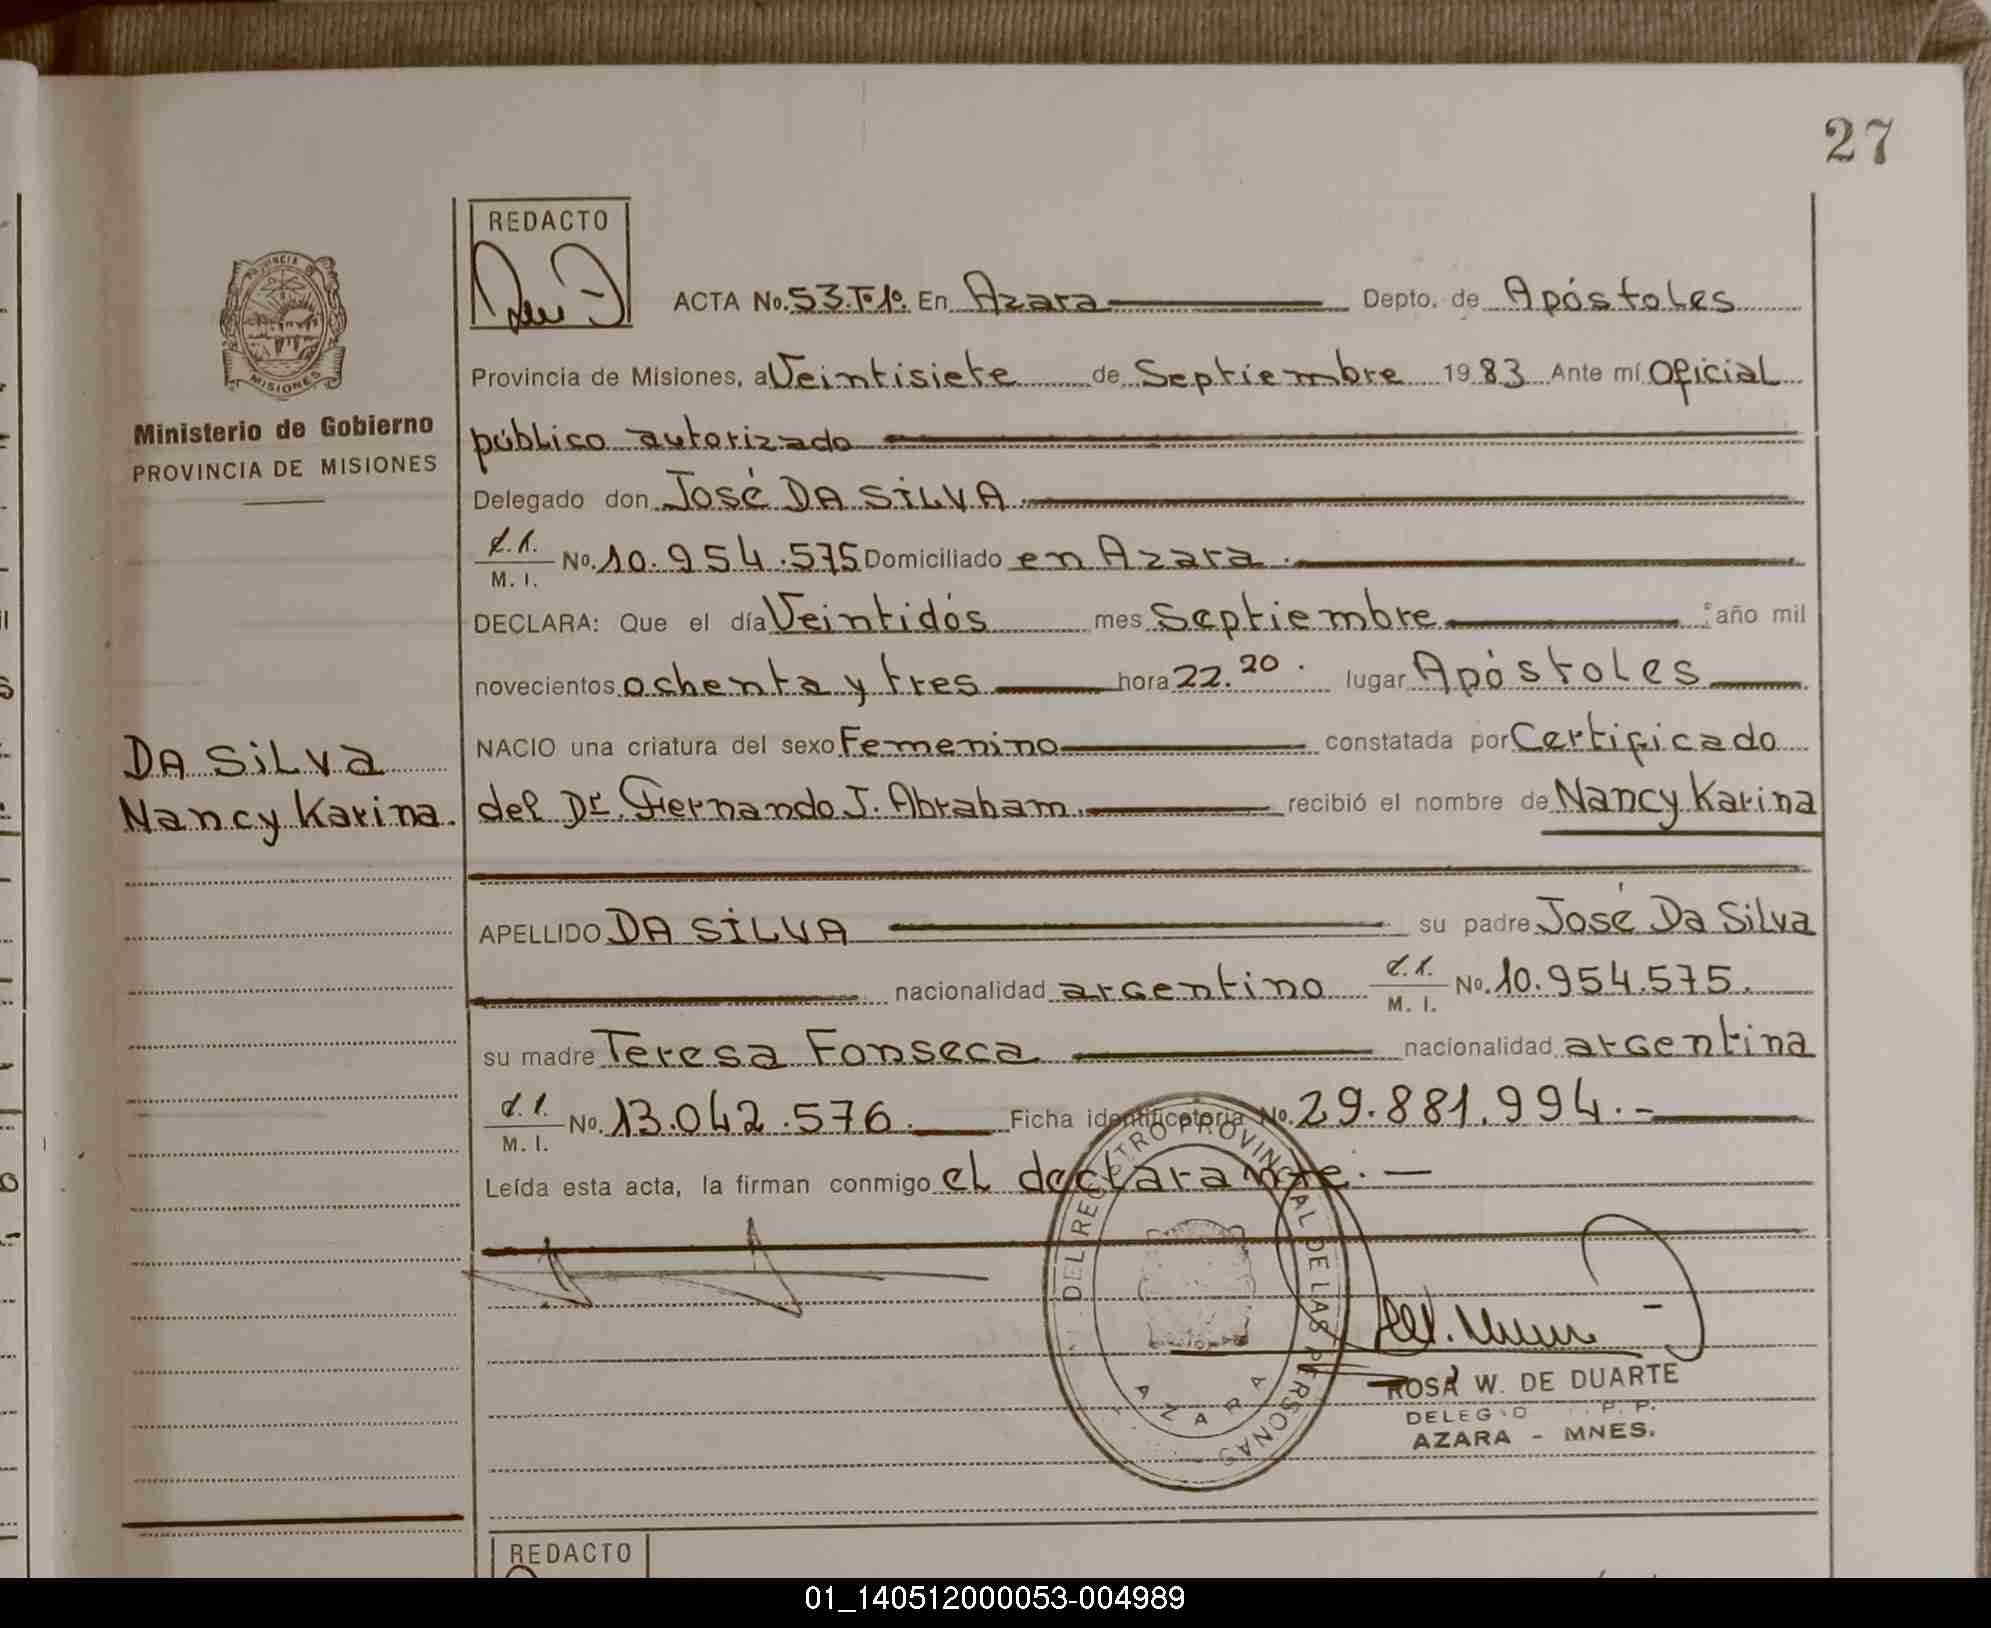 27
REDACTO
ACTA No. 53.Tº1º. En Azara Depto. de Apóstoles
Provincia de Misiones, a Veintisiete de Septiembre 1983 Ante mí Oficial
Ministerio de Gobierno
PROVINCIA DE MISIONES
público autorizado
Delegado don José DA SiLVA
C.I. M. I. No. 10.954.575 Domiciliado en Azara.
DECLARA: Que el día Veintidós mes Septiembre año mil
novecientos ochenta y tres hora 22.20. lugar Apóstoles
DA SiLVa
Nancy Karina.
NACIO una criatura del sexo Femenino constatada por Certificado
del Dr. Fernando J. Abraham. recibió el nombre de Nancy Karina
APELLIDO DA SiLVA su padre José Da Silva
nacionalidad argentino C.I. M. I. No. 10.954.575.
su madre Teresa Fonseca nacionalidad argentina
C.I. M. I. No. 13.042.576. Ficha identificatoria No. 29.881.994.-
Leída esta acta, la firman conmigo el declarante.—
DEL REGISTRO PROVINCIAL DE LAS PERSONAS
AZARA
ROSA W. DE DUARTE
P. P.
AZARA - MNES.
REDACTO
PROVINCIA
MISIONES
01_140512000053-004989